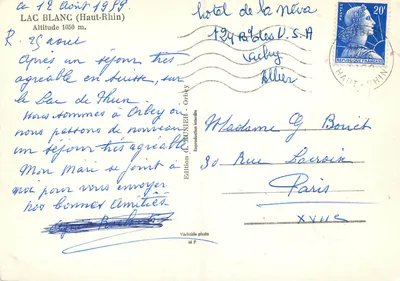 ce 12 août 1959
LAC BLANC (Haut-Rhin)
Altitude 1050 m.
R. 25 août
Après un séjour très
agréable en Suisse, sur
le Lac de Thun
nous sommes à Orbey où
nous passons de nouveau
un séjour très agréable
Mon Mari se joint à
moi pour vous envoyer
nos bonnes Amitiés
Hotel de la Néva
Vichy
Allier
20F
POSTES
HAUT-RHIN
Reproduction interdite
Véritable photo
Madame G
30 Rue Lacroix
Paris
XVIIe